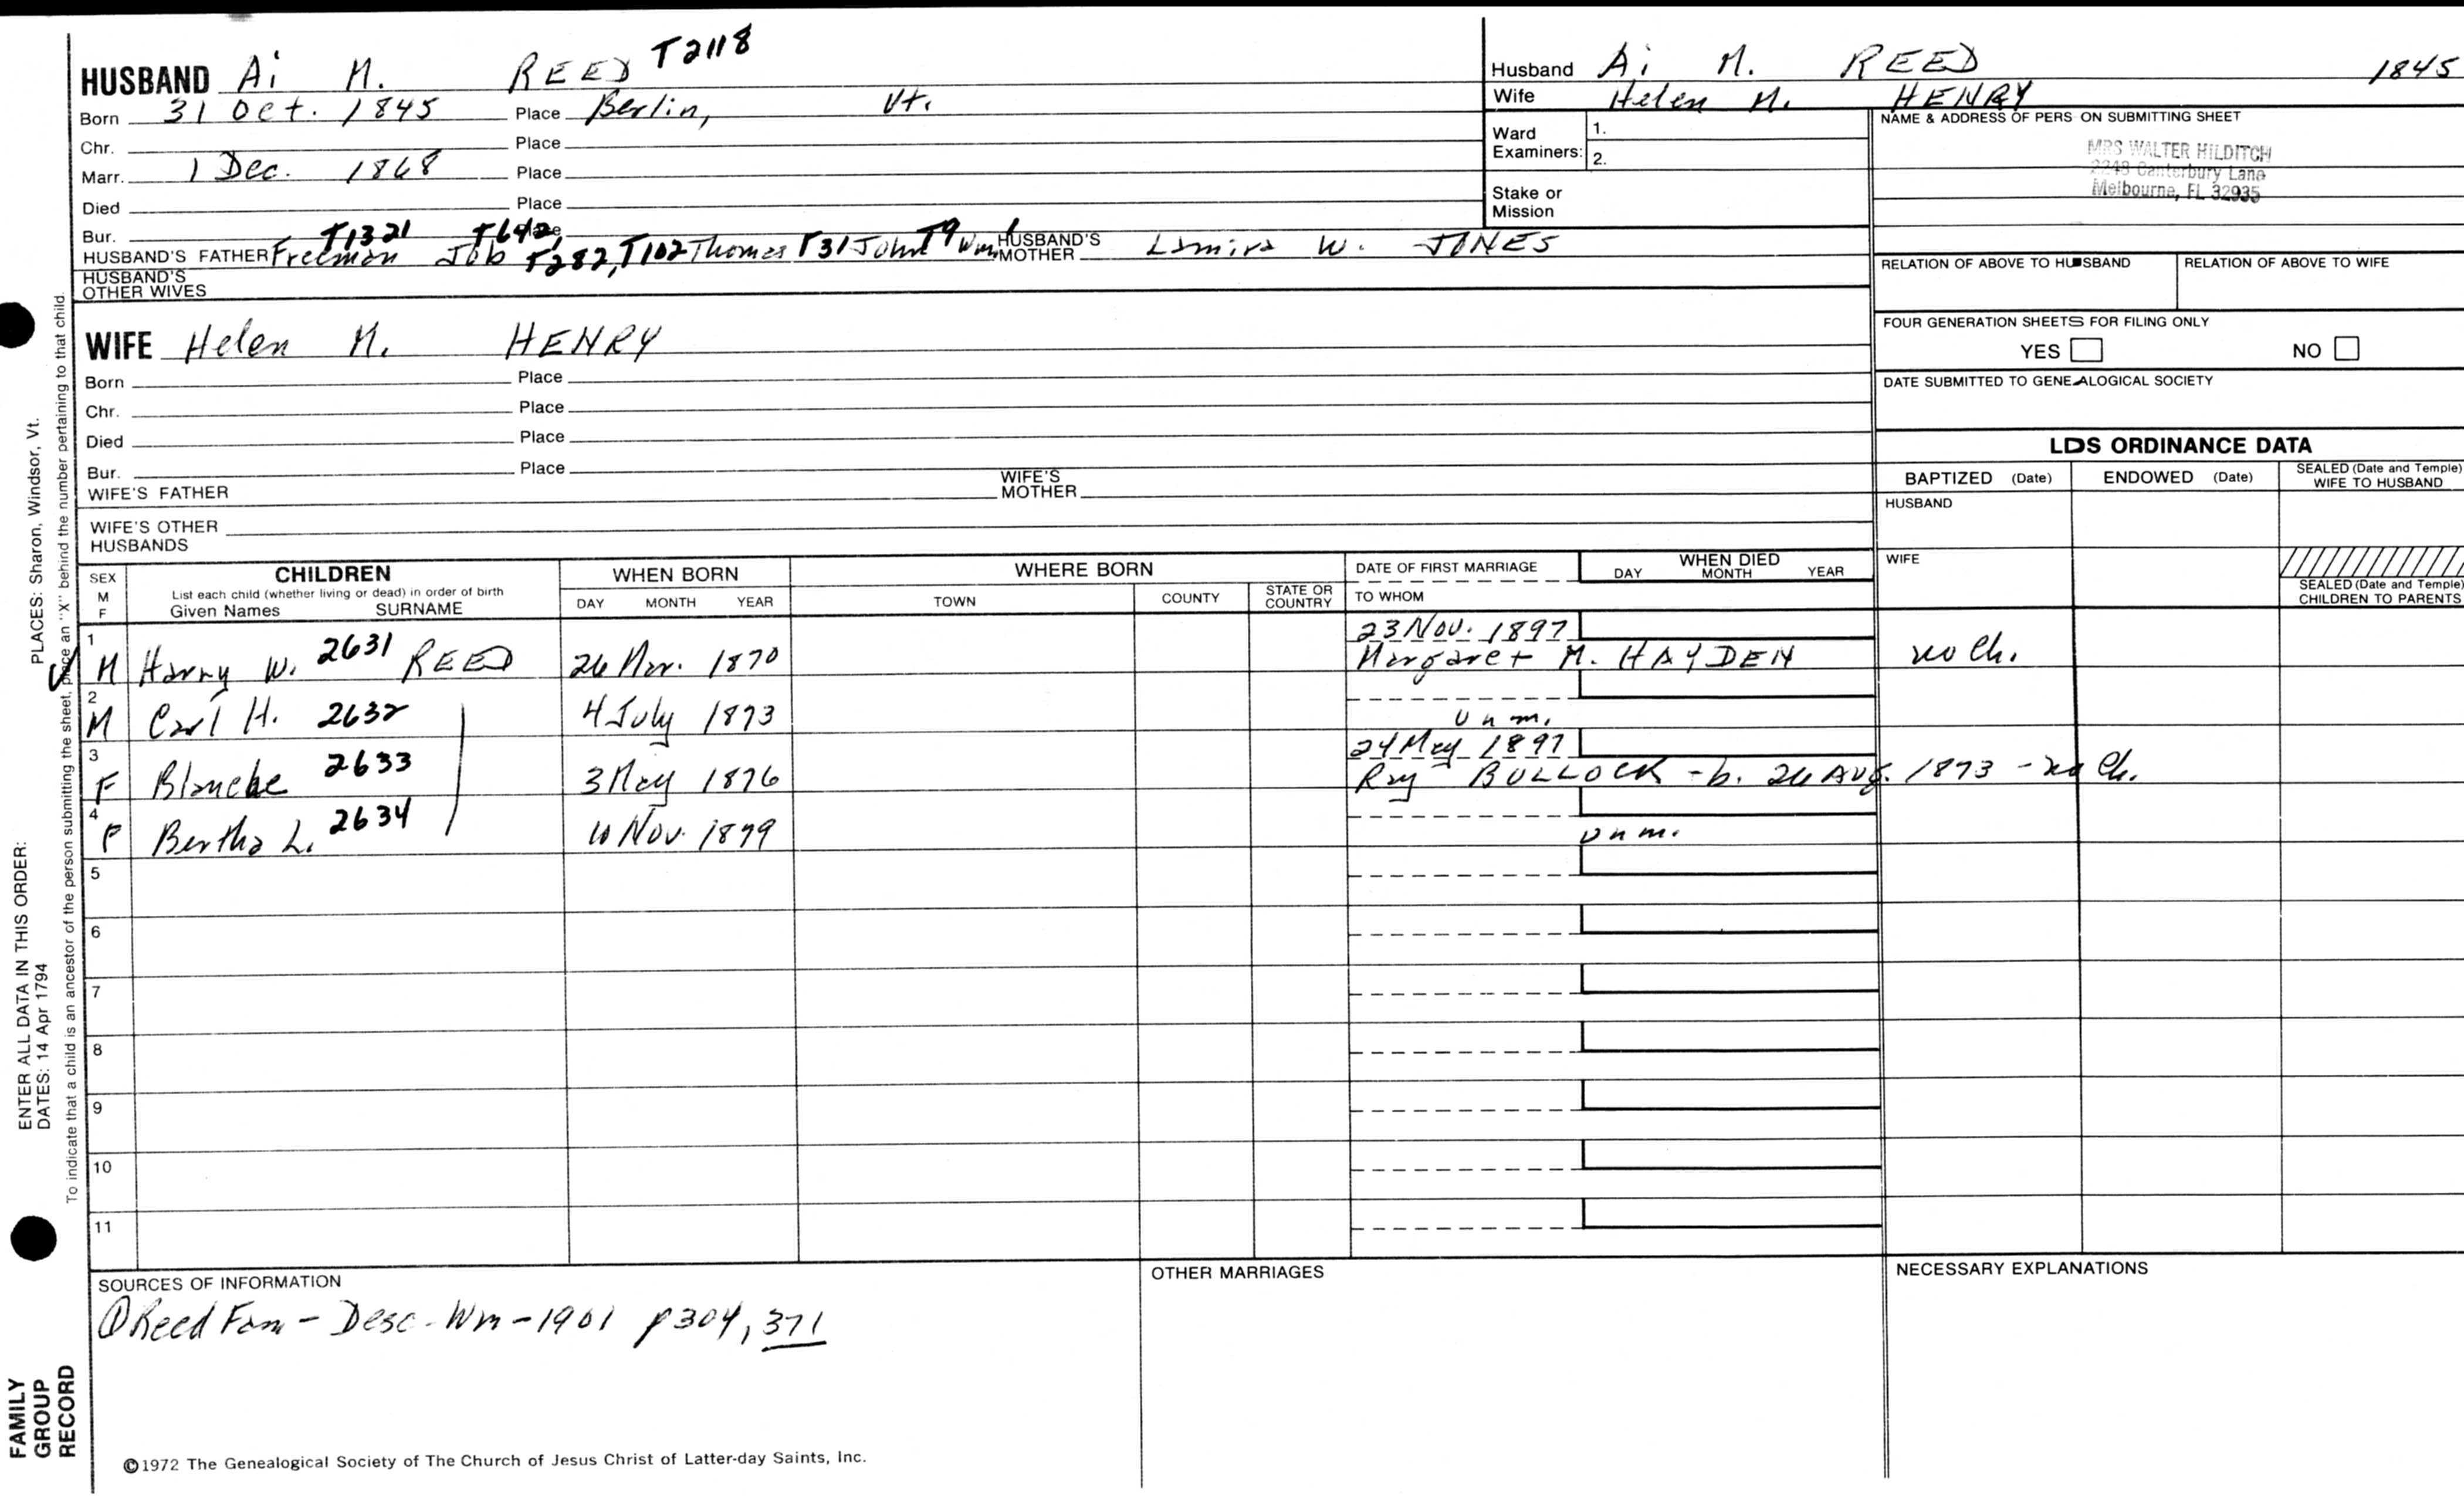 HUSBAND Ai M. REED T2118
Born 31 Oct. 1845 Place Berlin, Vt.
Chr. Place
Marr. 1 Dec. 1868 Place
Died Place
Bur. Place
T1321 T642,
HUSBAND'S FATHER Freeman Job T282, T102 Thomas T31 John T9 Wm 1 HUSBAND'S MOTHER W. JONES
HUSBAND'S OTHER WIVES
WIFE Helen M. HENRY
Born Place
Chr. Place
Died Place
Bur. Place
WIFE'S FATHER WIFE'S MOTHER
WIFE'S OTHER HUSBANDS
Husband Ai M. REED 1845
Wife Helen M. HENRY
Ward Examiners: 1.
2.
Stake or Mission
NAME & ADDRESS OF PERS ON SUBMITTING SHEET
MRS WALTER HILDITCH
Canterbury Lane
Melbourne, FL 32935
RELATION OF ABOVE TO HUSBAND RELATION OF ABOVE TO WIFE
FOUR GENERATION SHEETS FOR FILING ONLY
YES NO
DATE SUBMITTED TO GENEALOGICAL SOCIETY
LDS ORDINANCE DATA
BAPTIZED (Date) ENDOWED (Date) SEALED (Date and Temple) WIFE TO HUSBAND
HUSBAND
WIFE
SEALED (Date and Temple) CHILDREN TO PARENTS
SEX M F
CHILDREN
List each child (whether living or dead) in order of birth
Given Names SURNAME
WHEN BORN
DAY MONTH YEAR
WHERE BORN
TOWN COUNTY STATE OR COUNTRY
DATE OF FIRST MARRIAGE
TO WHOM
WHEN DIED
DAY MONTH YEAR
1 M Harry W. 2631 REED 26 Mar. 1870 23 Nov. 1897 Margaret M. HAYDEN no Ch.
2 M Carl H. 2632 4 July 1873 unm.
3 F Blanche 2633 3 May 1876 24 May 1897 Ray BULLOCK - b. 26 Aug. 1873 - no Ch.
4 F Bertha L. 2634 10 Nov. 1879 unm.
5
6
7
8
9
10
11
SOURCES OF INFORMATION
① Reed Fam - Desc - Wm - 1901 p 304, 371
OTHER MARRIAGES
NECESSARY EXPLANATIONS
©1972 The Genealogical Society of The Church of Jesus Christ of Latter-day Saints, Inc.
PLACES: Sharon, Windsor, Vt.
ENTER ALL DATA IN THIS ORDER:
DATES: 14 Apr 1794
To indicate that a child is an ancestor of the person submitting the sheet, place an "X" behind the number pertaining to that child.
FAMILY
GROUP
RECORD